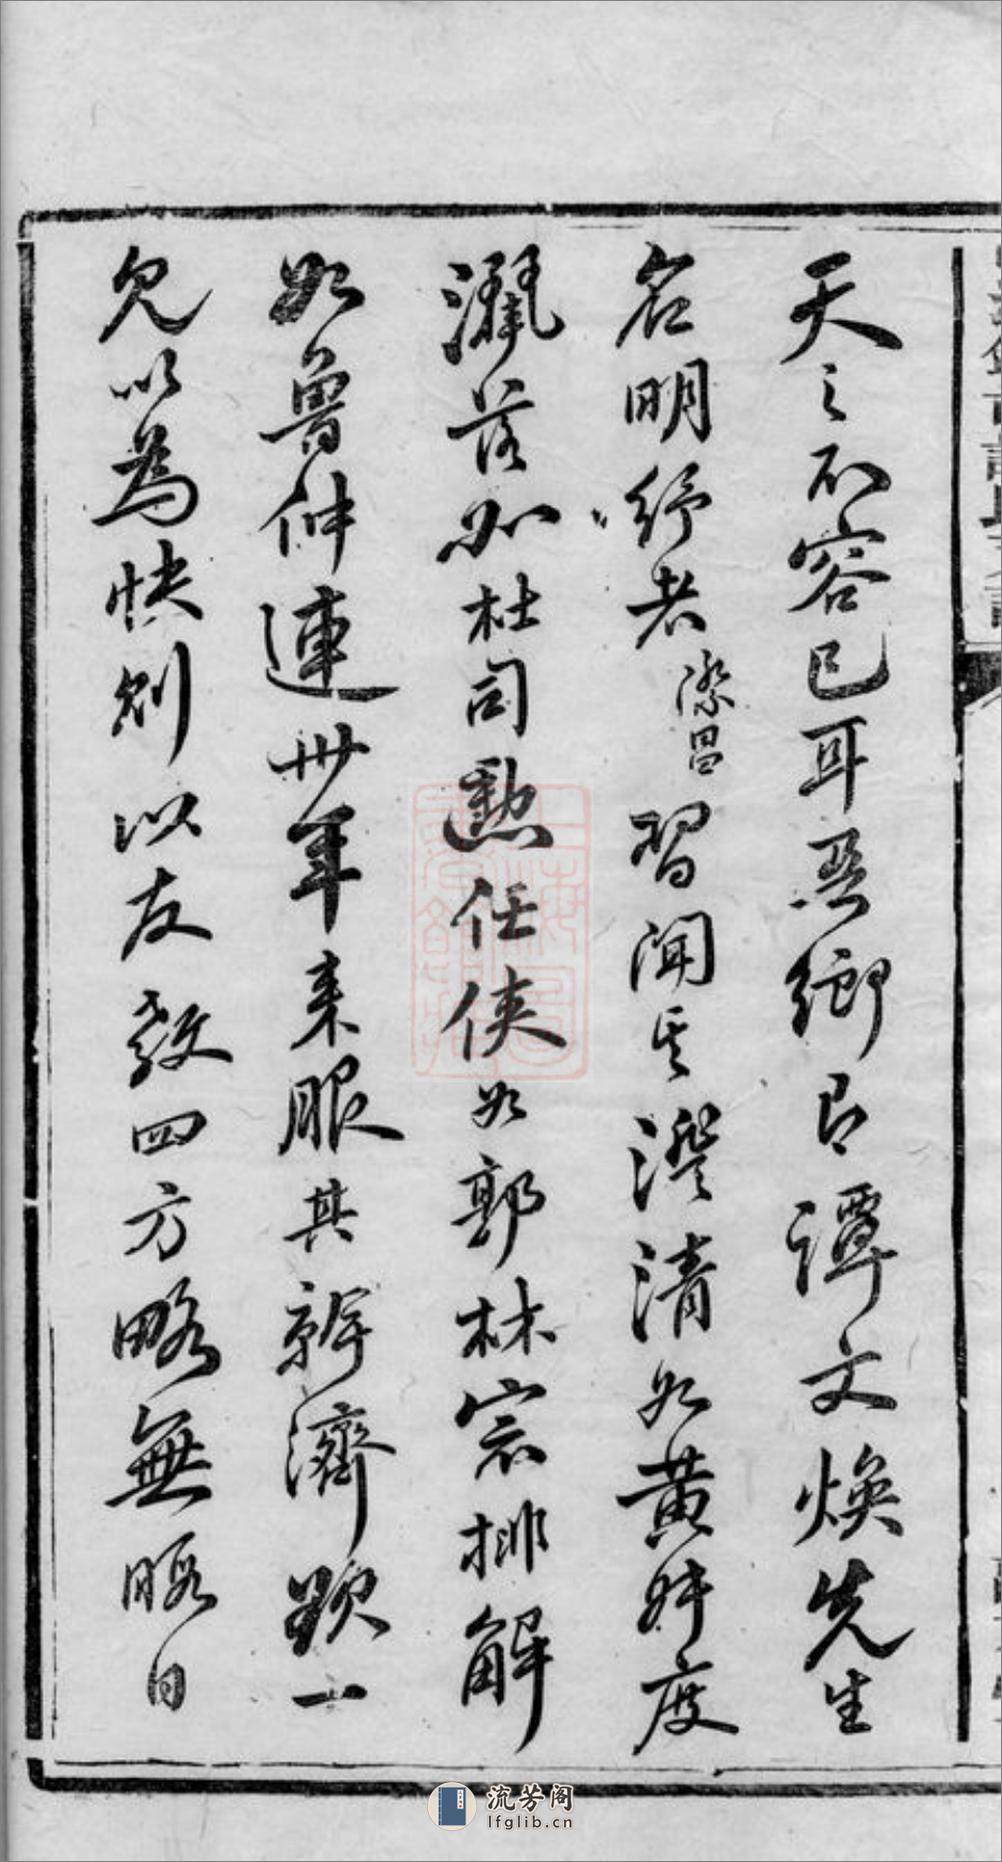 天之不容已耳吾鄉有譚文煥先生
名明紓者潔昌習聞其澄清如黃叔度
灑落如杜司勳任俠如郭林宗排解
如魯仲連卅年来服其辦濟欲一
見以為快則以友教四方略無暇日
流芳阁
lfglib.cn